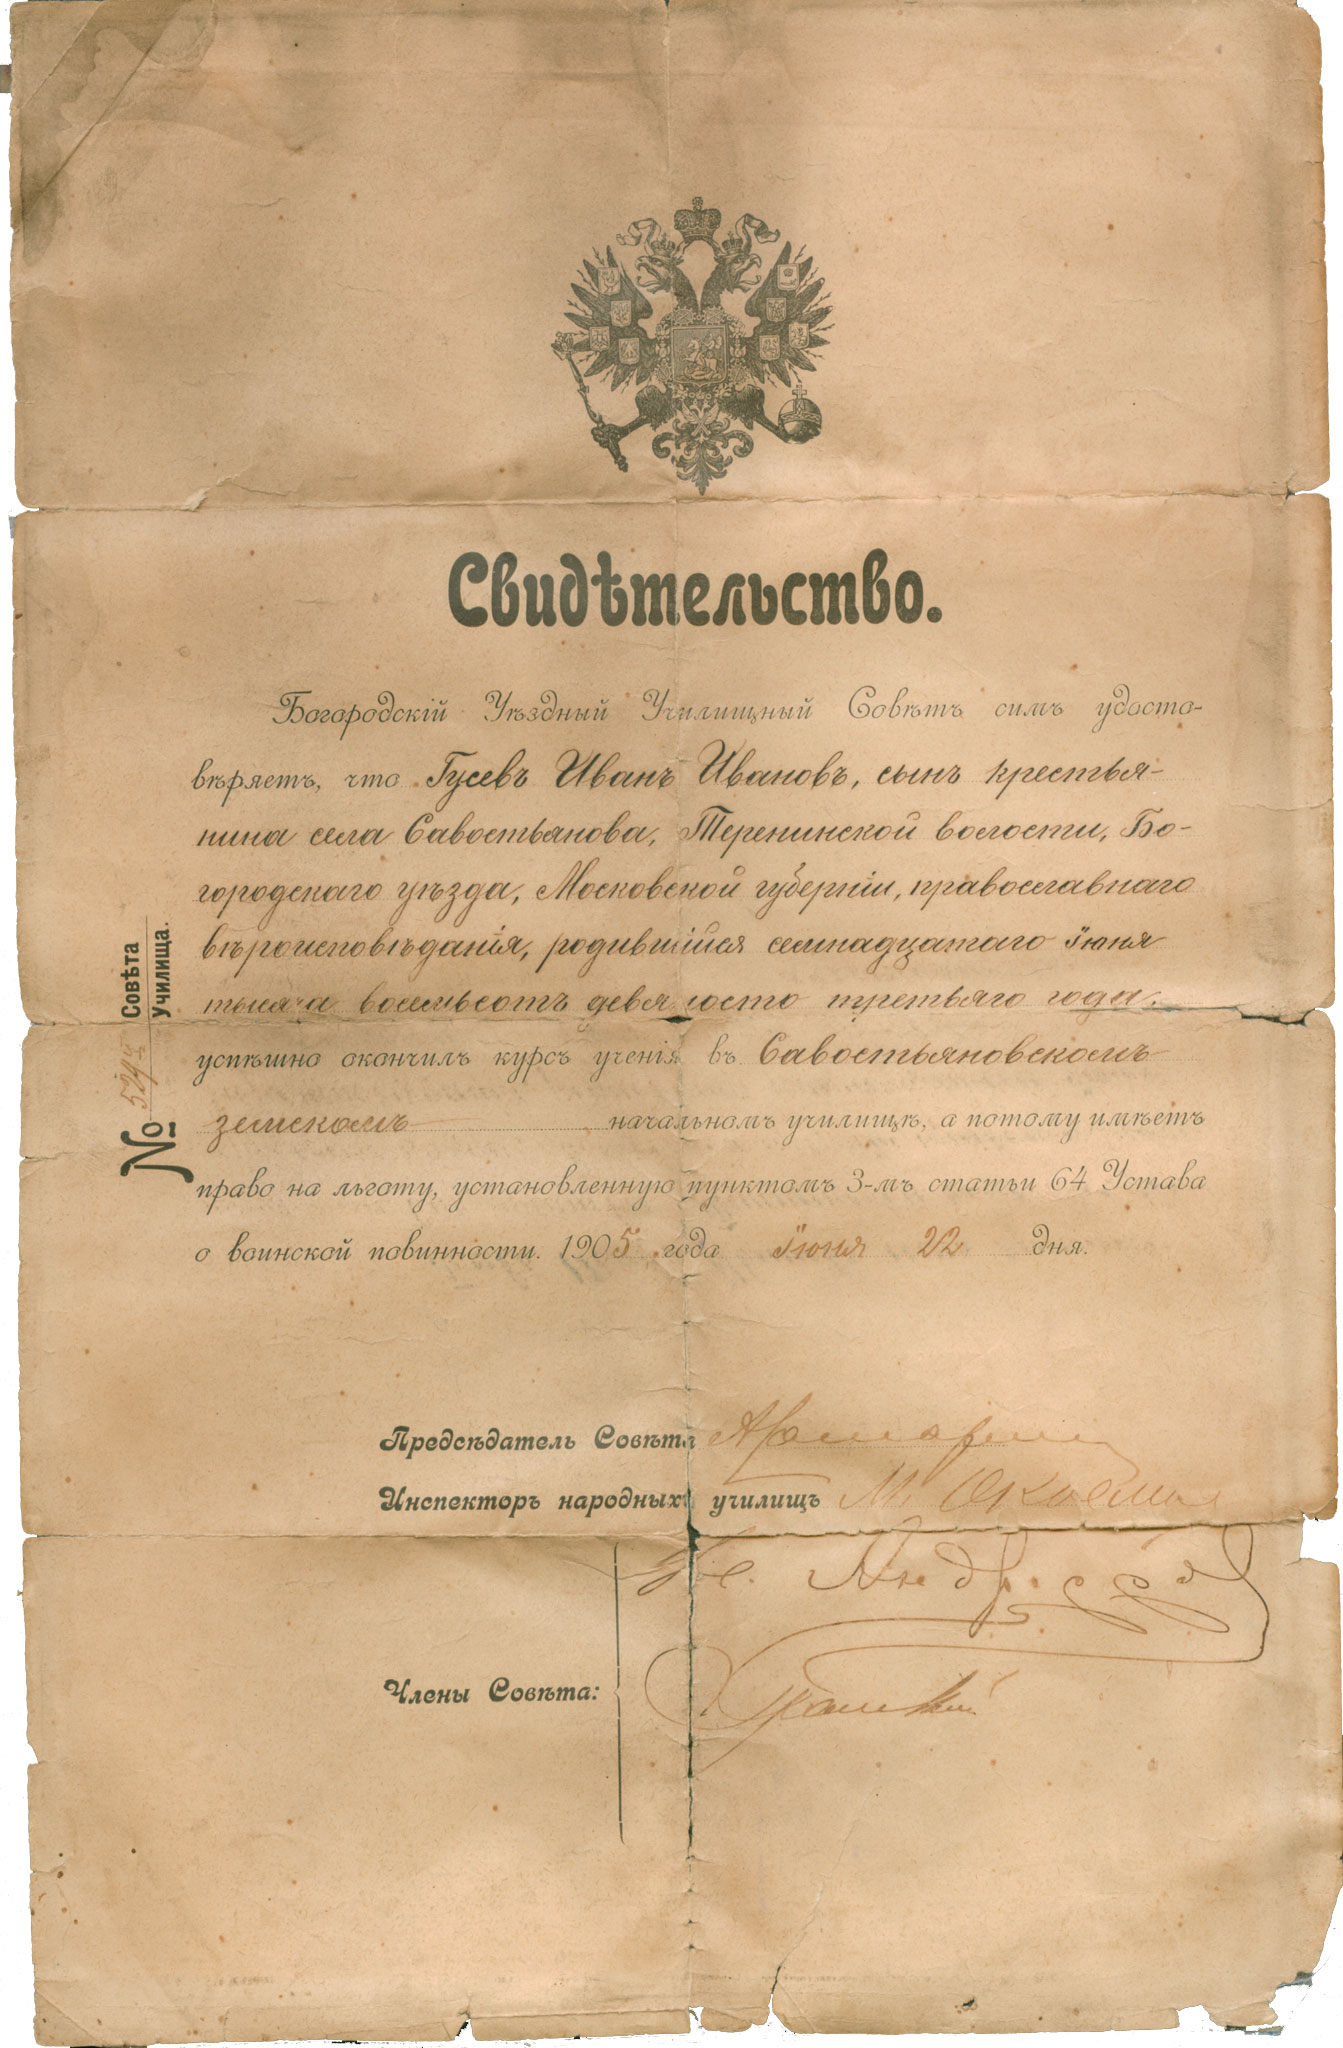 Свидѣтельство.
Богородскій Уѣздный Училищный Совѣтъ симъ удосто-
вѣряетъ, что Гусевъ Иванъ Ивановъ, сынъ крестья-
нина села Савостьянова, Теренинской волости, Бо-
городскаго уѣзда, Московской губерніи, православнаго
вѣроисповѣданія, родившійся семнадцатаго Іюня
тысяча восемьсотъ девяносто третьяго года.
успѣшно окончилъ курсъ ученія въ Савостьяновскомъ
земскомъ начальномъ училищѣ, а потому имѣетъ
право на льготу, установленную пунктомъ 3-мъ статьи 64 Устава
о воинской повинности. 1905 года Іюня 22 дня.
№ Совѣта
Училища.
Предсѣдатель Совѣта
Инспекторъ народныхъ училищъ М.
Члены Совѣта: